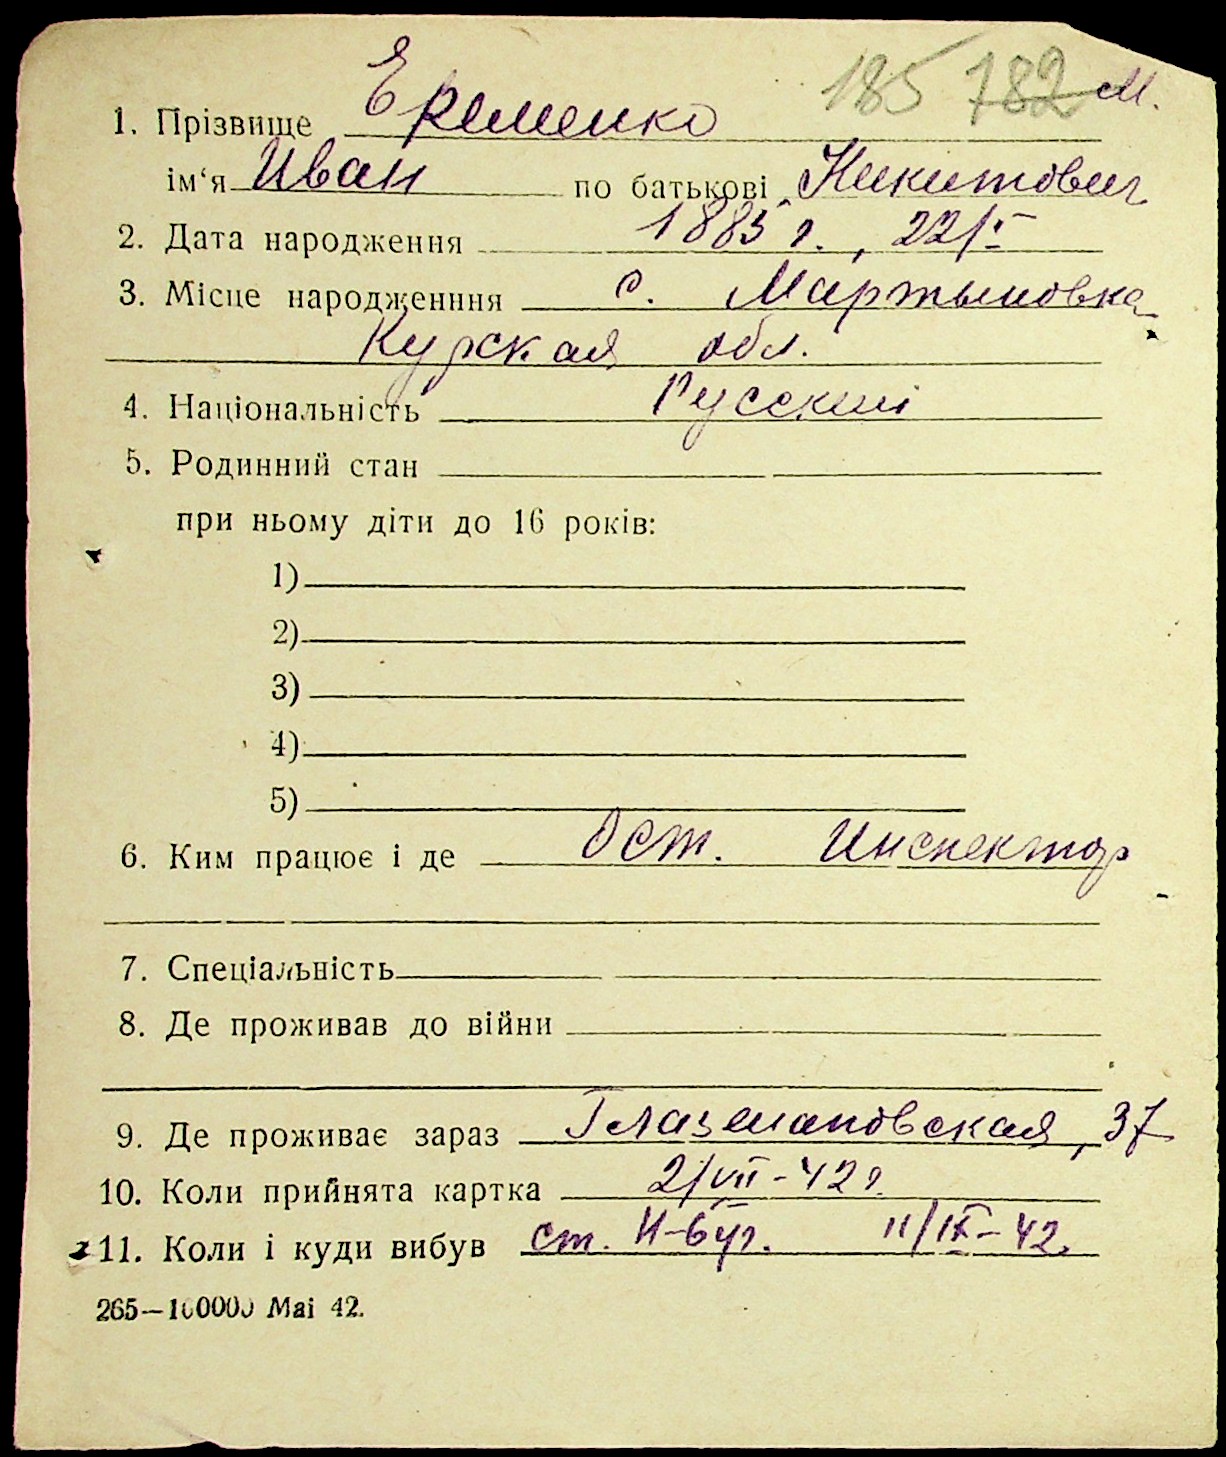 185 782 М.
1. Прізвище Еременко
ім‘я Иван по батькові Никитович
2. Дата народження 1885 г., 22/I
3. Місце народженння с. Мартыновка
Курская обл.
4. Національність Русский
5. Родинний стан
при ньому діти до 16 років:
1)
2)
3)
4)
5)
6. Ким працює і де Ост. Инспектор
7. Спеціальність
8. Де проживав до війни
9. Де проживає зараз Глазмановская, 37
10. Коли прийнята картка 2/VII-42 г.
11. Коли і куди вибув ст. Н-буг. 11/IX-42.
265—100000 Маі 42.